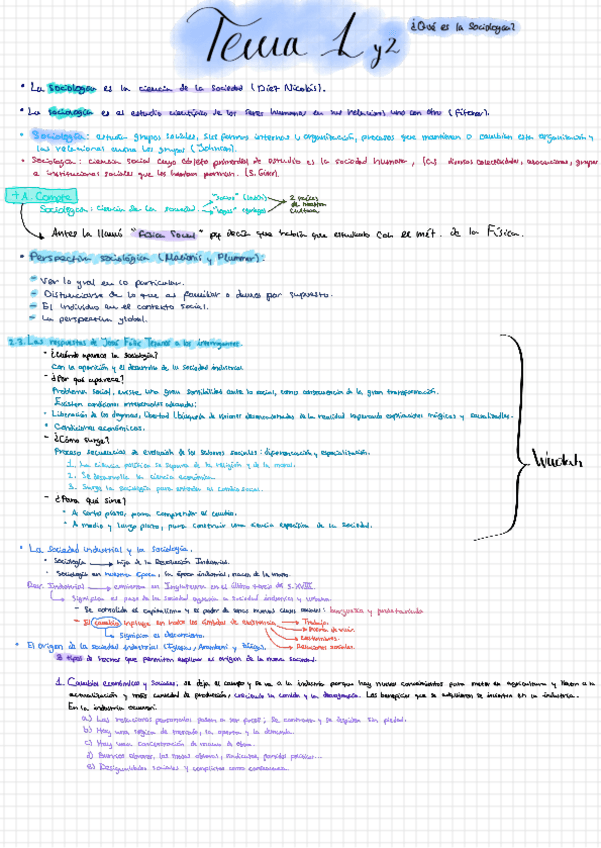 Tema 1 y 2
¿Qué es la Sociología?
• La sociología es la ciencia de la sociedad (Díez Nicolás).
• La sociología es el estudio científico de los seres humanos en sus relaciones unos con otro (Fitcher).
• Sociología: estudia grupos sociales, sus formas internas u organización, procesos que mantienen o cambian esta organización y
las relaciones entre los grupos (Johnson).
• Sociología: ciencia social cuyo objeto primordial de estudio es la sociedad humana, las diversas colectividades, asociaciones, grupos
e instituciones sociales que los humanos forman. (S. Giner).
→ A. Comte
Sociología: ciencia de la sociedad. "socus" (latín) "logus" (griego) 2 raíces
de nuestra
cultura
Antes la llamó "Física Social" pq decía que había que estudiarla con el mét. de la Física.
• Perspectiva sociológica (Macionis y Plummer).
- Ver lo gral en lo particular.
- Distanciarse de lo que es familiar o damos por supuesto.
- El individuo en el contexto social.
- La perspectiva global.
2.3. Las respuestas de José Félix Tezanos a los interrogantes.
• ¿Cuándo aparece la sociología?
Con la aparición y el desarrollo de la sociedad industrial
- ¿Por qué aparece?
Problema social, existe una gran sensibilidad ante lo social, como consecuencia de la gran transformación.
Existen condiciones
• Liberación de los dogmas, libertad búsqueda de visiones de la realidad superando explicaciones mágicas y
• Condiciones económicas.
- ¿Cómo surge?
Proceso secuencial de evolución de los saberes sociales: diferenciación y especialización.
1. La ciencia política se separa de la religión y de la moral.
2. Se desarrolla la ciencia económica.
3. Surge la sociología para entender el cambio social.
- ¿Para qué sirve?
• A corto plazo, para comprender el cambio.
• A medio y largo plazo, para construir una ciencia específica de la Sociedad.
• La sociedad industrial y la sociología.
• Sociología → hija de la Revolución Industrial.
• Sociología en nuestra época, la época industrial, nacen de la mano.
Rev. Industrial → comienza en Inglaterra en el último tercio del S. XVIII.
Significa el paso de la sociedad agraria a sociedad industrial y urbana.
- Se consolida el capitalismo y el poder de unas nuevas clases sociales: burguesía y proletariado
- El cambio influye en todos los ámbitos de existencia → Trabajo.
Costumbres.
Significa el decrecimiento. Relaciones sociales.
• El origen de la sociedad industrial (Iglesias, Aramberri y Zúñiga).
3 tipos de factores que permiten explicar el origen de la nueva sociedad.
1. Cambios económicos y sociales: se deja el campo y se va a la industria porque hay nuevos conocimientos para meter en agricultura y llevan a la
mecanización y mayor cantidad de producción, creciendo la comida y la demografía. Los beneficios que se obtuvieron se invierten en la industria.
En la industria ocurrió:
a) Las relaciones personales pasan a ser frías; se contratan y se despiden sin piedad.
b) Hay una lógica de mercado, la oferta y la demanda.
c) Hay una concentración de mano de obra.
d) Barrios obreros, las masas obreras, sindicatos, partidos políticos...
e) Desigualdades sociales y conflictos como consecuencia.